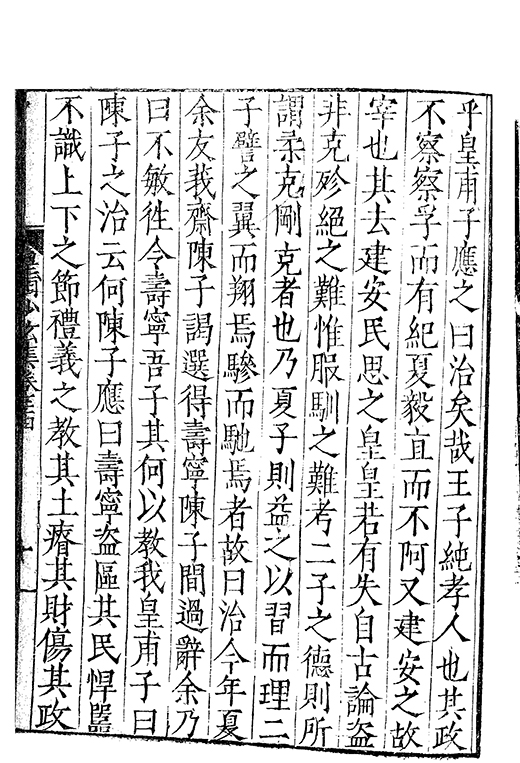 乎皇甫子應之曰治矣哉王子純孝人也其政
不察察孚而有紀夏毅直而不阿又建安之故
宰也其去建安民思之皇皇若有失自古論盗
非克殄絕之難惟服馴之難考二子之德則所
謂柔克剛克者也乃夏子則益之以習而理二
子譬之翼而翔焉驂而馳焉者故曰治今年夏
余友莪齋陳子謁選得壽寧陳子間過辭余乃
曰不敏徃令壽寧吾子其何以教我皇甫子曰
陳子之治云何陳子應曰壽寧盗區其民悍嚚
不識上下之節禮義之教其土瘠其財傷其政